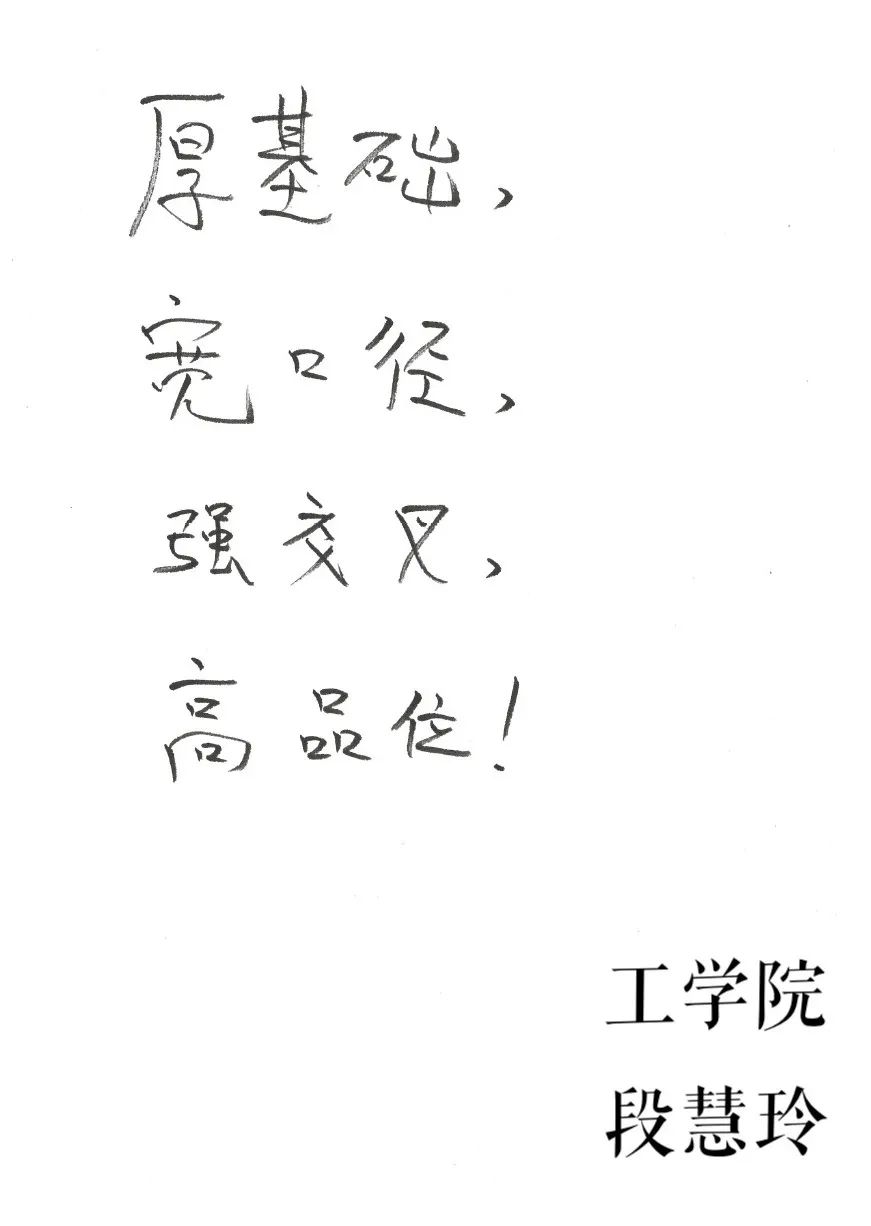 厚基础,
宽口径,
强交叉,
高品位!
工学院
段慧玲